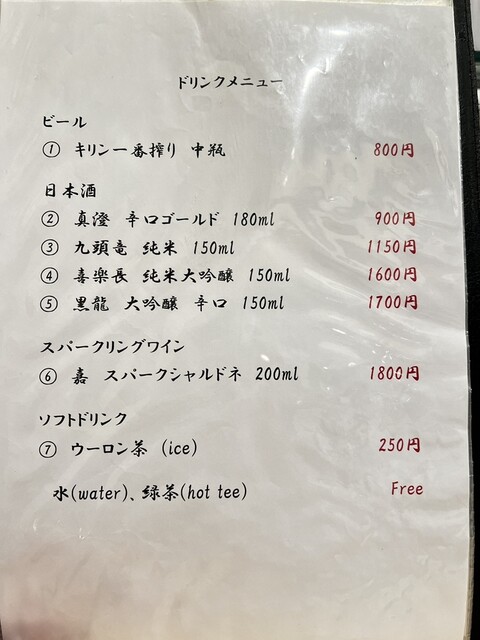 ドリンクメニュー
ビール
① キリン一番搾り 中瓶 800円
日本酒
② 真澄 辛口ゴールド 180ml 900円
③ 九頭竜 純米 150ml 1150円
④ 喜楽長 純米大吟醸 150ml 1600円
⑤ 黒龍 大吟醸 辛口 150ml 1700円
スパークリングワイン
⑥ 嘉 スパークシャルドネ 200ml 1800円
ソフトドリンク
⑦ ウーロン茶 (ice) 250円
水(water)、緑茶(hot tee) Free